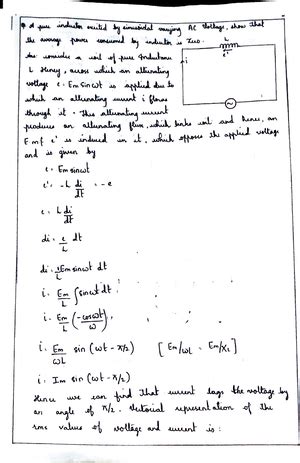 A pure inductor excited by sinusoidal varying AC Voltage, show that
the average power consumed by inductor is zero.
L
let consider a coil of pure Inductance
L Henry, across which an alternating
voltage e = Em sin ωt is applied due to
which an alternating current i flows
through it. This alternating current
produces an alternating flux, which links coil and hence, an
Emf e' is induced in it, which opposes the applied voltage
and is given by
e = Em sin ωt
e' = -L di/dt = -e
e = L di/dt
di = e/L dt
di = Em sin ωt dt
L
i = Em/L ∫ sin ωt dt
i = Em/L (-cos ωt / ω)
i = Em/ωL sin (ωt - π/2) [Em/ωL = Em/XL]
i = Im sin (ωt - π/2)
Hence we can find that current lags the voltage by
an angle of π/2. Vectorial representation of the
rms values of voltage and current is: